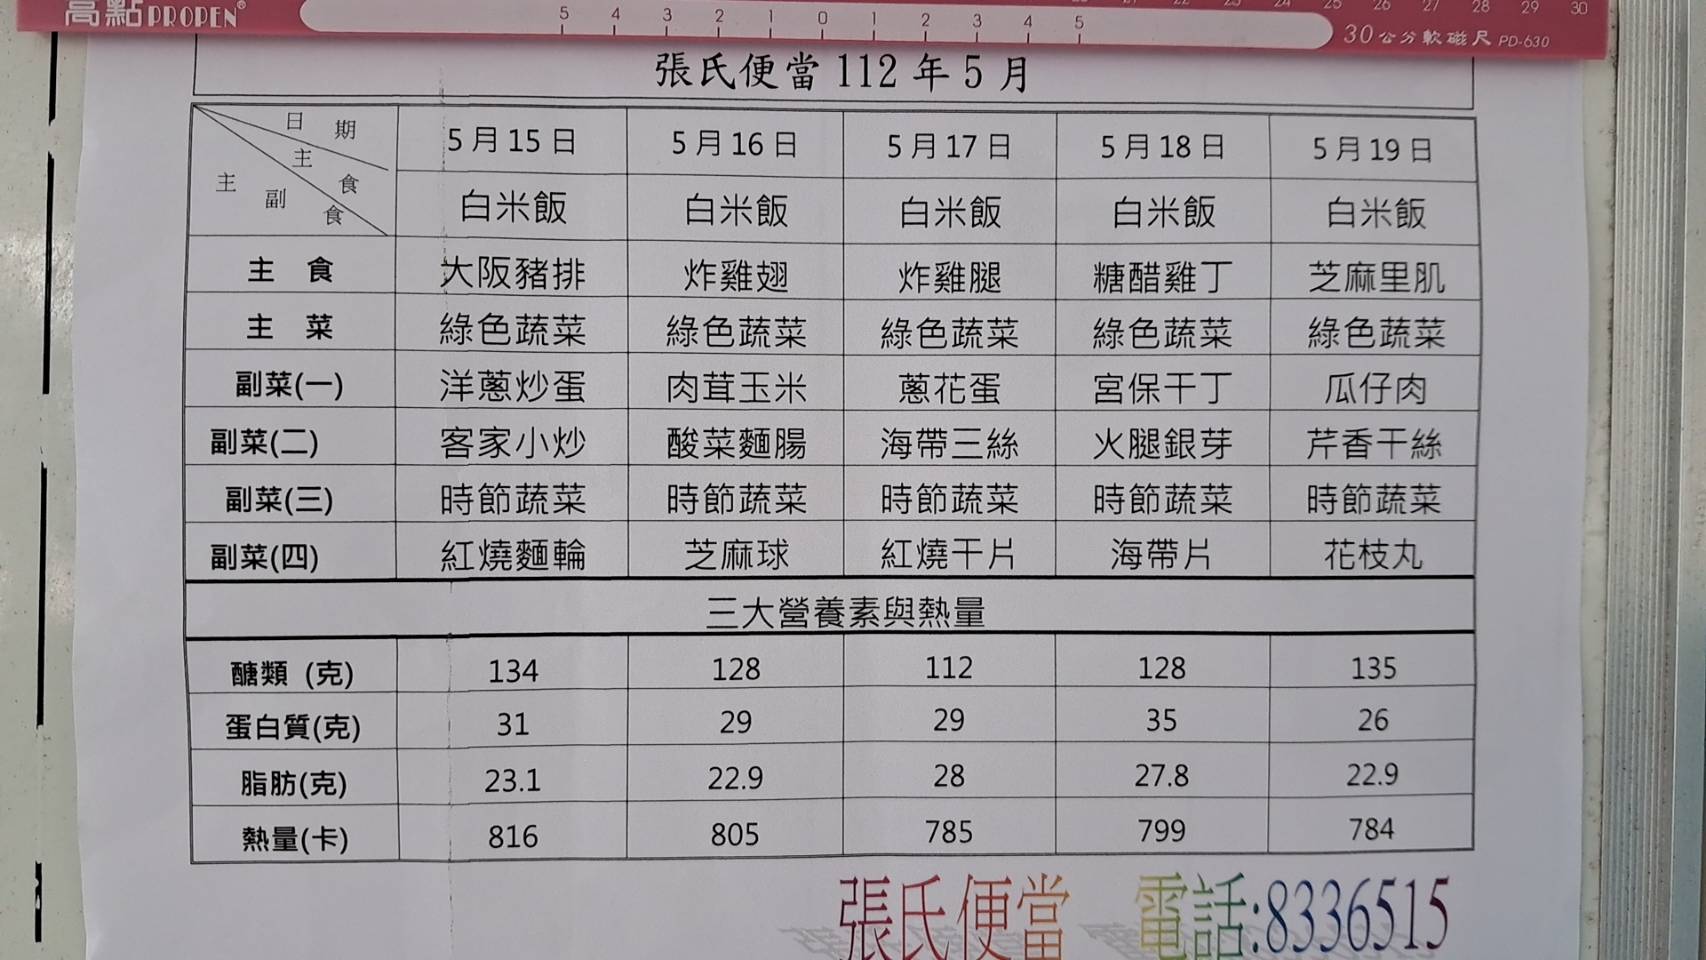 高點PROPEN®
5 4 3 2 1 0 1 2 3 4 5
22 23 24 25 26 27 28 29 30
30公分軟磁尺 PD-630
張氏便當 112 年 5 月
日期 主食 主副食 5月15日 5月16日 5月17日 5月18日 5月19日
白米飯 白米飯 白米飯 白米飯 白米飯
主 食 大阪豬排 炸雞翅 炸雞腿 糖醋雞丁 芝麻里肌
主 菜 綠色蔬菜 綠色蔬菜 綠色蔬菜 綠色蔬菜 綠色蔬菜
副菜(一) 洋蔥炒蛋 肉茸玉米 蔥花蛋 宮保干丁 瓜仔肉
副菜(二) 客家小炒 酸菜麵腸 海帶三絲 火腿銀芽 芹香干絲
副菜(三) 時節蔬菜 時節蔬菜 時節蔬菜 時節蔬菜 時節蔬菜
副菜(四) 紅燒麵輪 芝麻球 紅燒干片 海帶片 花枝丸
三大營養素與熱量
醣類 (克) 134 128 112 128 135
蛋白質(克) 31 29 29 35 26
脂肪(克) 23.1 22.9 28 27.8 22.9
熱量(卡) 816 805 785 799 784
張氏便當 電話:8336515